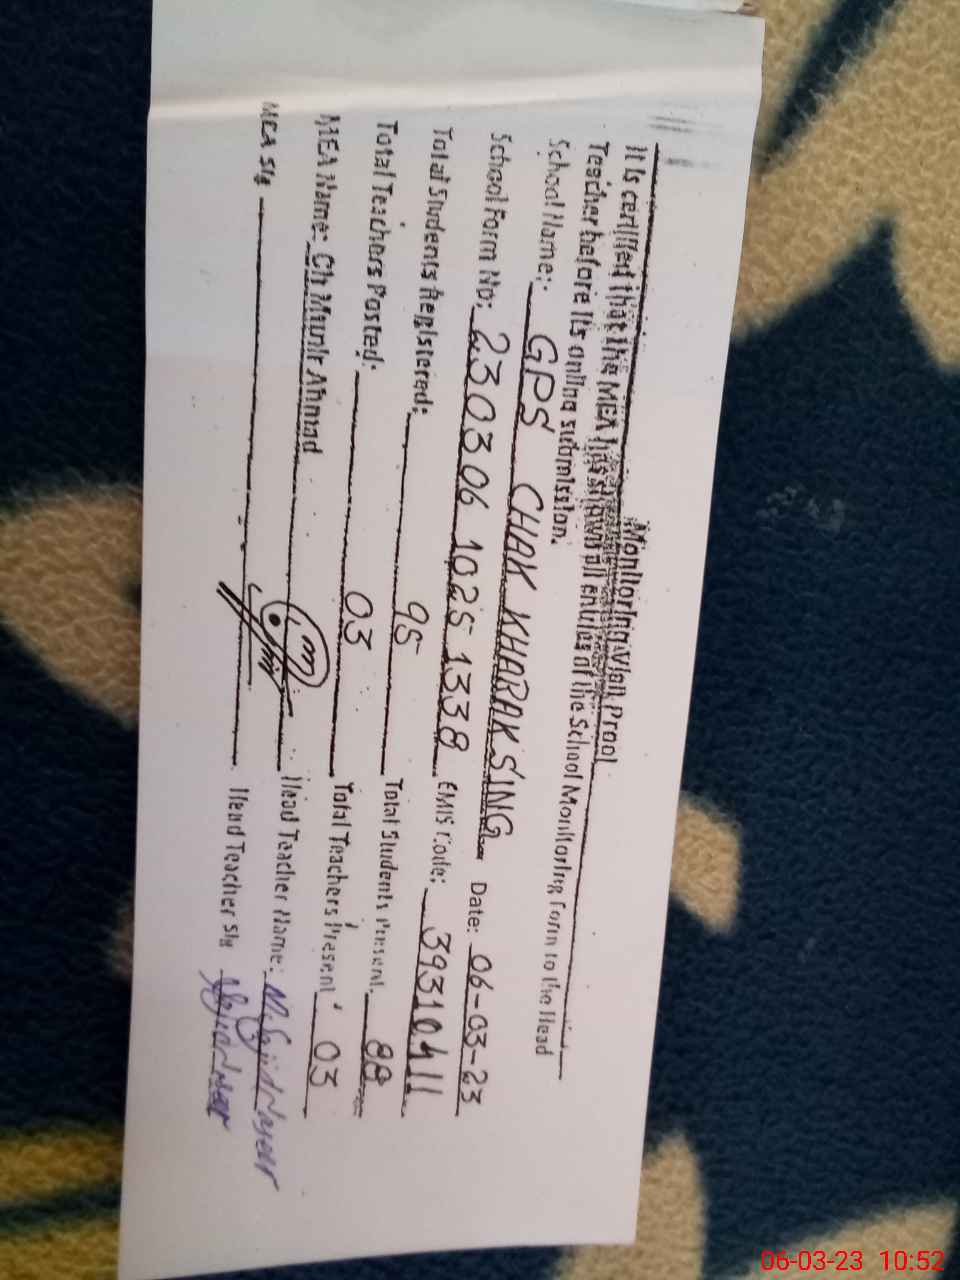 Monitoring Visit Proof
It is certified that the MEA has shown all entries of the School Monitoring Form to the Head
Teacher before its online submission.
School Name:- GPS CHAK KHARAK SING Date: 06-03-23
School Form No: 230306 1025 1338 EMIS Code: 39310411
Total Students Registered: 95 Total Students Present. 88
Total Teachers Posted: 03 Total Teachers Present 03
MEA Name: Ch Munir Ahmad Head Teacher Name:
MEA Sig Head Teacher Sig
06-03-23 10:52